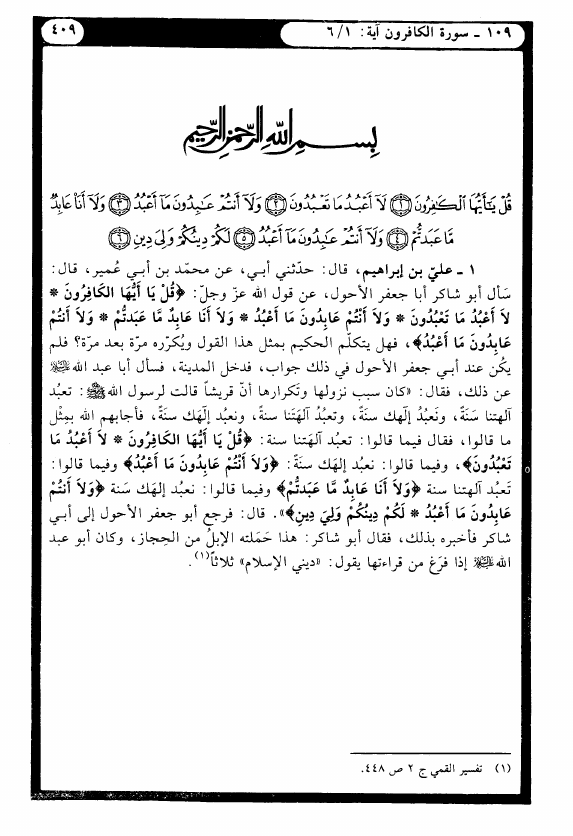 ١٠٩ ـ سورة الكافرون آية: ١/ ٦
٤٠٩
بِسْمِ اللهِ الرَّحْمٰنِ الرَّحِيمِ
قُلْ يَٰٓأَيُّهَا ٱلْكَٰفِرُونَ ١ لَآ أَعْبُدُ مَا تَعْبُدُونَ ٢ وَلَآ أَنتُمْ عَٰبِدُونَ مَآ أَعْبُدُ ٣ وَلَآ أَنَا۠ عَابِدٌ
مَّا عَبَدتُّمْ ٤ وَلَآ أَنتُمْ عَٰبِدُونَ مَآ أَعْبُدُ ٥ لَكُمْ دِينُكُمْ وَلِىَ دِينِ ٦
١ ـ عليّ بن إبراهيم، قال: حدّثني أبي، عن محمّد بن أبي عُمير، قال:
سَأل أبو شاكر أبا جعفر الأحول، عن قول الله عزّ وجلّ: ﴿قُلْ يَا أَيُّهَا الكَافِرُونَ *
لاَ أَعْبُدُ مَا تَعْبُدُونَ * وَلاَ أَنْتُمْ عَابِدُونَ مَا أَعْبُدُ * وَلاَ أَنَا عَابِدٌ مَا عَبَدتُّمْ * وَلاَ أَنْتُمْ
عَابِدُونَ مَا أَعْبُدُ﴾، فهل يتكلّم الحكيم بمثل هذا القول ويُكرّره مرّة بعد مرّة؟ فلم
يكُن عند أبي جعفر الأحول في ذلك جواب، فدخل المدينة، فسأل أبا عبد الله عليه السلام
عن ذلك، فقال: «كان سبب نزولها وتَكرارها أنّ قريشاً قالت لرسول الله ﷺ: تعبُد
آلهتنا سَنَةً، ونَعبُد إلٰهك سنَةً، وتعبُد آلهَتَنا سنةً، ونعبُد إلٰهَك سنَةً، فأجابهم الله بمِثْل
ما قالوا، فقال فيما قالوا: تعبُد آلهَتنا سنة: ﴿قُلْ يَا أَيُّهَا الكَافِرُونَ * لاَ أَعْبُدُ مَا
تَعْبُدُونَ﴾، وفيما قالوا: نعبُد إلٰهك سَنةً: ﴿وَلاَ أَنْتُمْ عَابِدُونَ مَا أَعْبُدُ﴾ وفيما قالوا:
تَعبُد آلهتنا سنة ﴿وَلاَ أَنَا عَابِدٌ مَا عَبَدتُّمْ﴾ وفيما قالوا: نعبُد إلٰهَك سَنة ﴿وَلاَ أَنتُمْ
عَابِدُونَ مَا أَعْبُدُ * لَكُمْ دِينُكُمْ وَلِيَ دِينِ﴾». قال: فرجع أبو جعفر الأحول إلى أبي
شاكر فأخبره بذلك، فقال أبو شاكر: هذا حَمَلته الإبلُ من الحِجاز، وكان أبو عبد
الله عليه السلام إذا فرَغ من قراءتها يقول: «ديني الإسلام» ثلاثاً(١).
(١) تفسير القمي ج ٢ ص ٤٤٨.